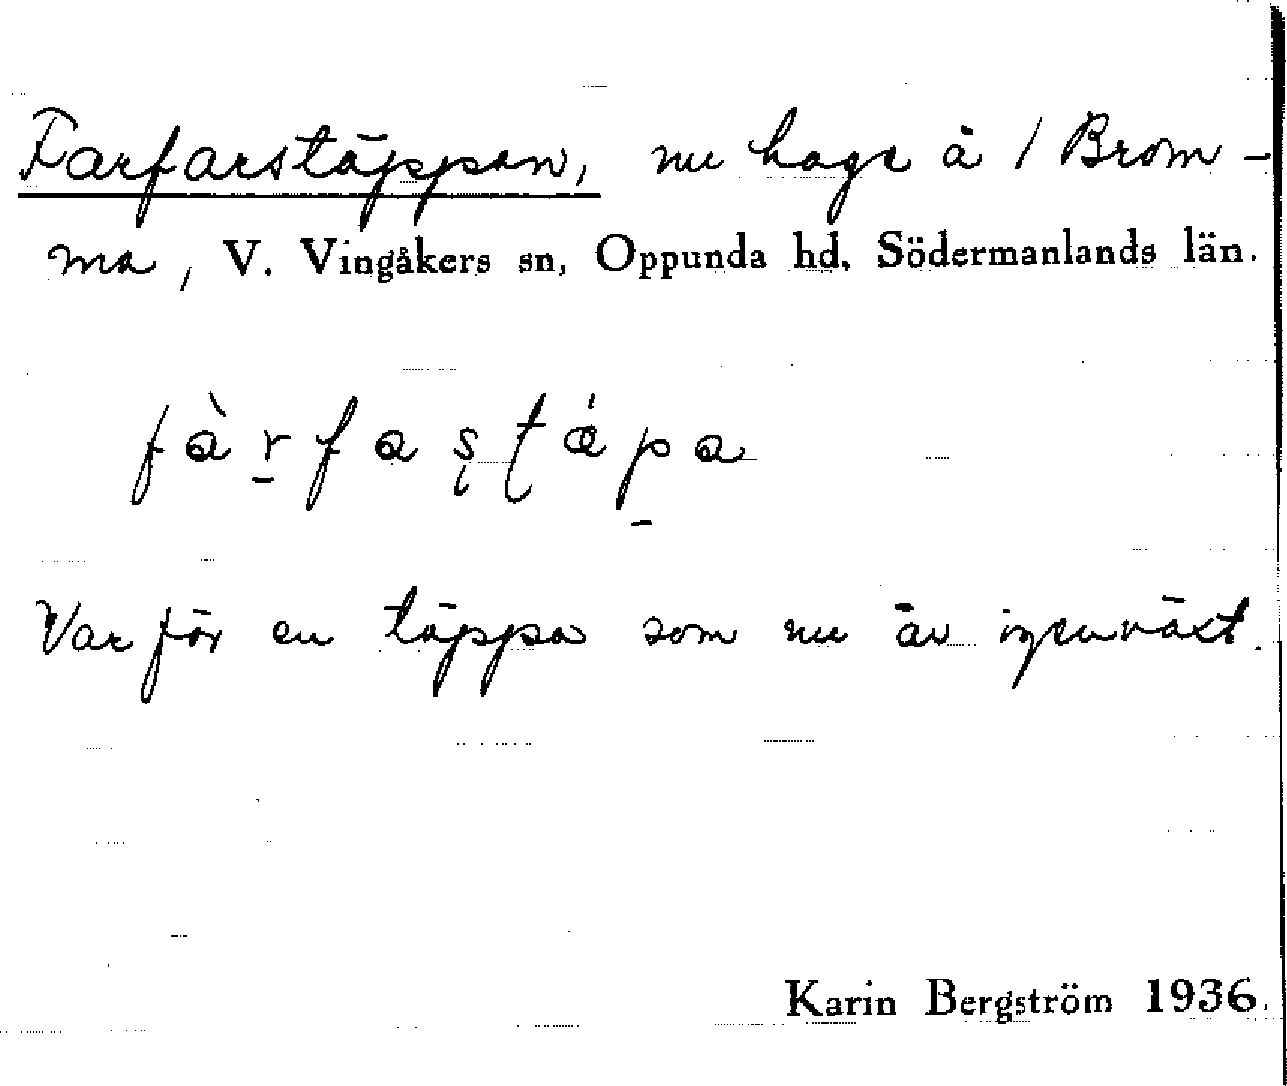 Farfarstäppan, nu hage å 1 Brom-
ma, V. Vingåkers sn, Oppunda hd. Södermanlands län.
fàr̠faştǽp̠a
Var för en täppa som nu är igenväxt.
Karin Bergström 1936.